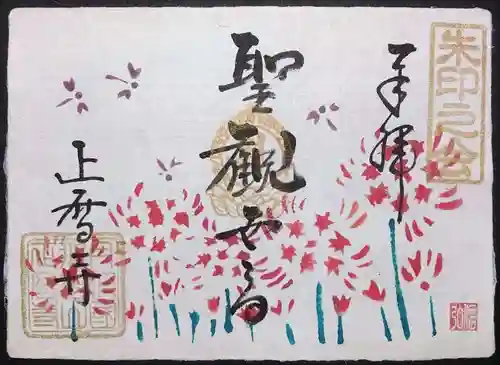 奉拝
聖観世音
正暦寺
朱印之会